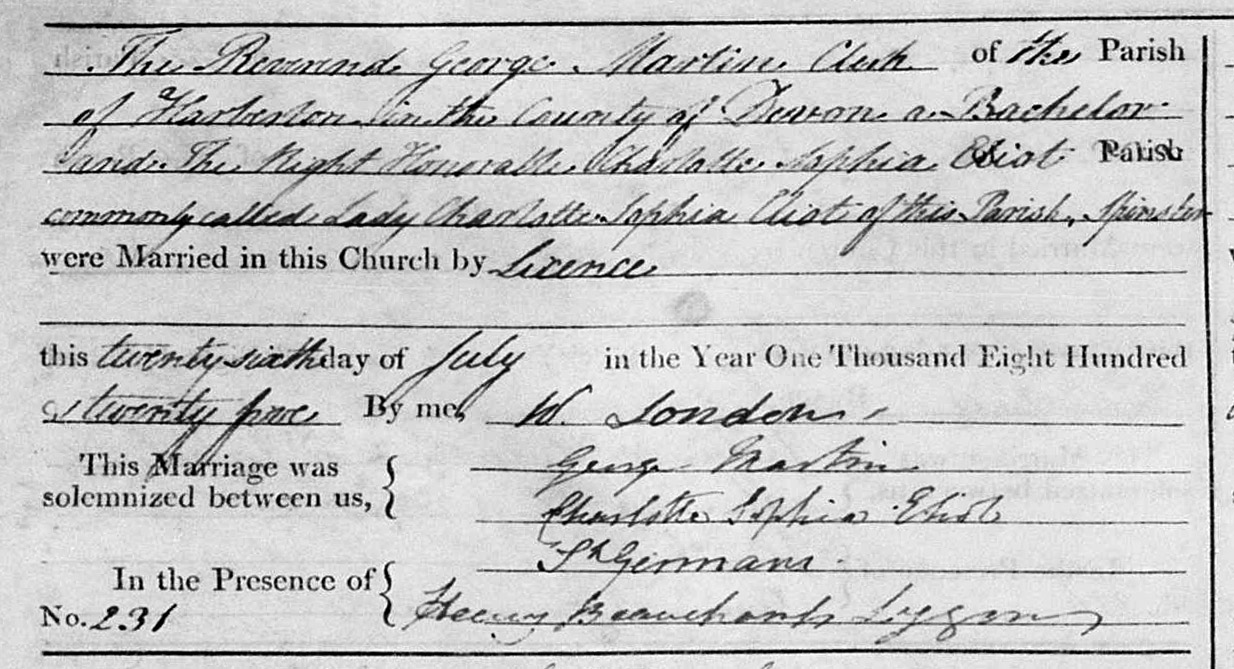 The Reverend George Martin Clerk of the Parish
of Harberton in the County of Devon a Bachelor
and The Right Honorable Charlotte Sophia Eliot Parish
commonly called Lady Charlotte Sophia Eliot of this Parish, Spinster
were Married in this Church by Licence
this twenty sixth day of July in the Year One Thousand Eight Hundred
& twenty five By me, W. London
This Marriage was solemnized between us, { George Martin
Charlotte Sophia Eliot
In the Presence of { St Germans
Henry Beauchamp Lygon
No. 231